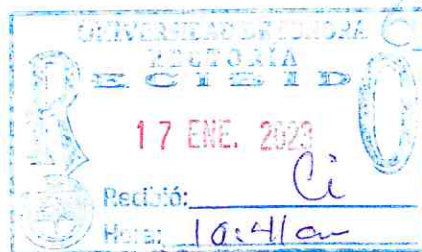 UNIVERSIDAD DE SONORA
RECTORÍA
RECIBIDO
17 ENE. 2023
Recibió: Ci
Hora: 10:41 am